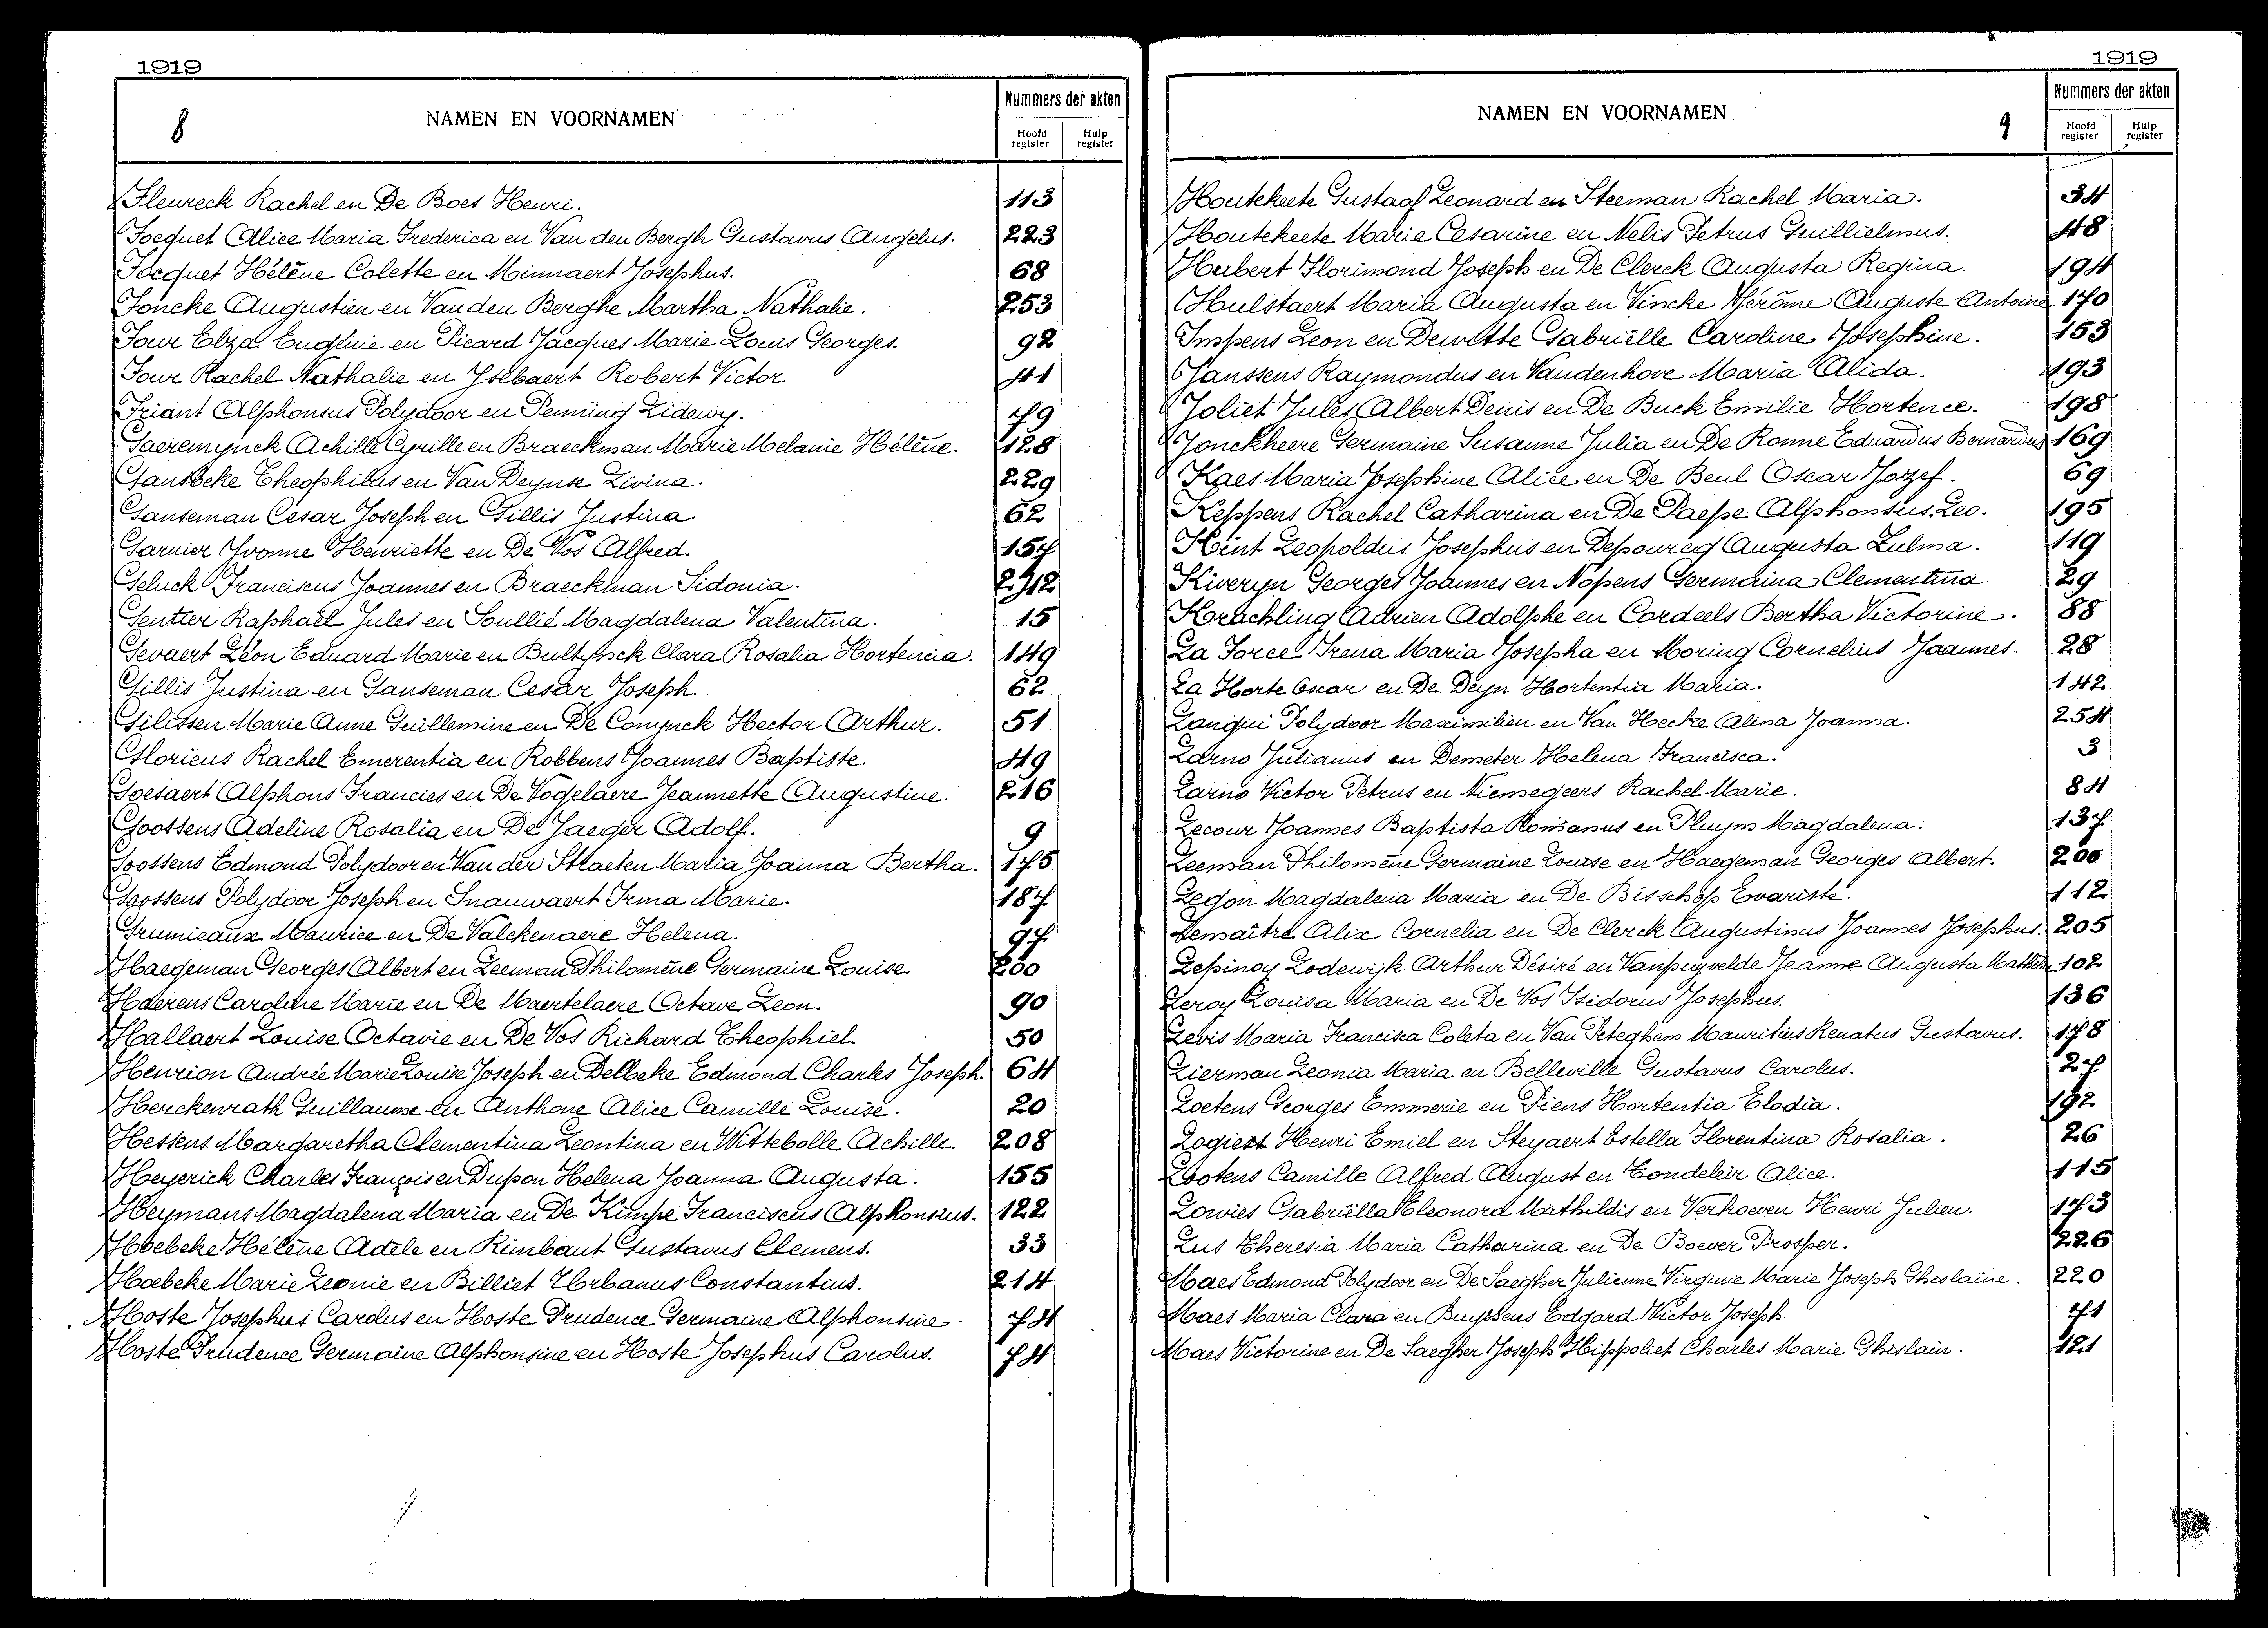 1919
8
NAMEN EN VOORNAMEN
Nummers der akten
Hoofd register
Hulp register
Fleureck Rachel en De Boes Henri. 113
Focquet Alice Maria Frederica en Van den Bergh Gustavus Angelus. 223
Focquet Hélène Colette en Minnaert Josephus. 68
Foncke Augustien en Vanden Berghe Martha Nathalie. 253
Four Elza Eugénie en Picard Jacques Marie Louis Georges. 92
Four Rachel Nathalie en Ysebaert Robert Victor. 41
Friant Alphonsus Polydoor en Penning Lidewy. 79
Gaeremynck Achille Cyrille en Braeckman Marie Melanie Hélène. 128
Gansbeke Theophilus en Van Deynse Livina. 229
Ganseman Cesar Joseph en Gillis Justina. 62
Garnier Yvonne Henriette en De Vos Alfred. 157
Geluck Franciscus Joannes en Braeckman Sidonia. 242
Gentier Raphaël Jules en Soullié Magdalena Valentina. 15
Gevaert Léon Eduard Marie en Bultynck Clara Rosalia Hortencia. 149
Gillis Justina en Ganseman Cesar Joseph. 62
Gilissen Marie Anne Guillemine en De Conynck Hector Arthur. 51
Glorieus Rachel Emerentia en Robbens Joannes Baptiste. 49
Goesaert Alphons Francies en De Vogelaere Jeannette Augustine. 216
Goossens Adeline Rosalia en De Jaeger Adolf. 9
Goossens Edmond Polydoor en Van der Straeten Maria Joanna Bertha. 175
Goossens Polydoor Joseph en Snauwaert Irma Marie. 187
Grumieaux Maurice en De Valckenaere Helena. 97
Haegeman Georges Albert en Leeman Philomène Germaine Louise 200
Haerens Caroline Marie en De Maertelaere Octave Leon. 90
Hallaert Louise Octavie en De Vos Richard Theophiel. 50
Henrion Andrée Marie Louise Joseph en Delbeke Edmond Charles Joseph. 64
Herckenrath Guillaume en Anthone Alice Camille Louise. 20
Hessens Margaretha Clementina Leontina en Wittebolle Achille. 208
Heyerick Charles François en Dupon Helena Joanna Augusta. 155
Heymans Magdalena Maria en De Kimpe Franciscus Alphonsius. 122
Hoebeke Hélène Adèle en Rimbaut Gustavus Clemens. 33
Hoebeke Marie Leonie en Billiet Urbanus Constantius. 214
Hoste Josephus Carolus en Hoste Prudence Germaine Alphonsine. 74
Hoste Prudence Germaine Alphonsine en Hoste Josephus Carolus. 74
1919
NAMEN EN VOORNAMEN.
9
Nummers der akten
Hoofd register
Hulp register
Houtekeete Gustaaf Leonard en Steeman Rachel Maria. 34
Houtekeete Marie Cesarine en Nelis Petrus Guillielmus. 48
Hubert Florimond Joseph en De Clerck Augusta Regina. 194
Hulstaert Maria Augusta en Vincke Jérôme Auguste Antoine 170
Impens Leon en Dewette Gabriëlle Caroline Josephine. 153
Janssens Raymondus en Vandenhove Maria Alida. 193
Joliet Jules Albert Denis en De Buck Emilie Hortence. 198
Jonckheere Germaine Susanne Julia en De Ronne Eduardus Bernardus 169
Kaes Maria Josephine Alice en De Beul Oscar Jozef. 69
Keppens Rachel Catharina en De Paepe Alphonsius Leo. 195
Kint Leopoldus Josephus en Depourcq Augusta Zulma. 119
Kiveryn Georges Joannes en Nopens Germaina Clementina. 29
Krachling Adrien Adolphe en Cordeels Bertha Victorine. 88
La Force Irena Maria Josepha en Moring Cornelius Joannes. 28
La Horte Oscar en De Deyn Hortentia Maria. 142
Langui Polydoor Maximilien en Van Hecke Alina Joanna. 254
Larno Julianus en Demeter Helena Francisca. 3
Larno Victor Petrus en Niemegeers Rachel Marie. 84
Lecour Joannes Baptista Romanus en Pluym Magdalena. 137
Leeman Philomène Germaine Louise en Haegeman Georges Albert. 200
Legon Magdalena Maria en De Bisschop Evariste. 112
Lemaître Alix Cornelia en De Clerck Augustinus Joannes Josephus. 205
Lepinoy Lodewijk Arthur Désiré en Vanpuyvelde Jeanne Augusta 102
Leroy Louisa Maria en De Vos Isidorus Josephus. 136
Levis Maria Francisca Coleta en Van Peteghem Mauritius Renatus Gustavus. 178
Lierman Leonia Maria en Belleville Gustavus Carolus. 27
Loetens Georges Emmerie en Piens Hortentia Elodia. 192
Logiest Henri Emiel en Steyaert Estella Florentina Rosalia. 26
Lootens Camille Alfred August en Tondeleir Alice. 115
Lowies Gabriëlla Eleonora Mathildis en Verhoeven Henri Julien. 173
Lus Theresia Maria Catharina en De Boever Prosper. 226
Maes Edmond Polydoor en De Saegher Julienne Virginie Marie Joseph Ghislaine. 220
Maes Maria Clara en Buyssens Edgard Victor Joseph. 71
Maes Victorine en De Saegher Joseph Hippoliet Charles Marie Ghislain. 121